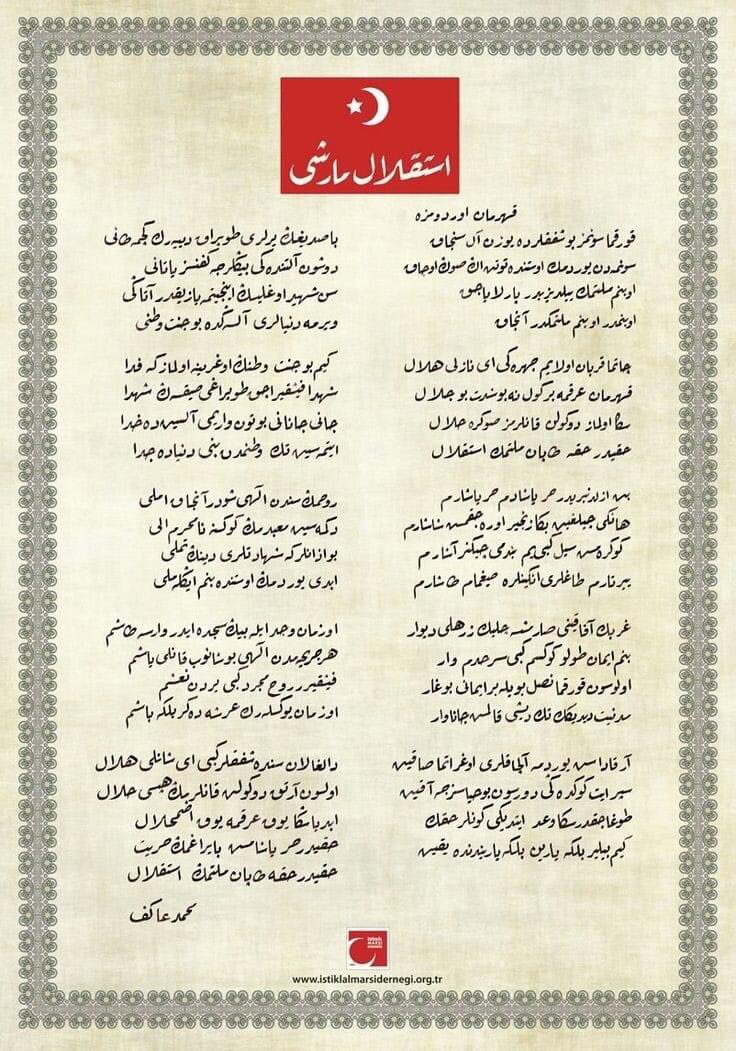 استقلال مارشی
قهرمان اوردومزه
قورقما سونمز بو شفقلرده یوزن آل سنجاق
سونمه‌دن یوردمك اوستنده توتن اڭ صوڭ اوجاق
او بنم ملتمك ییلدیزیدر پارلایاجق
او بنمدر او بنم ملتمكدر آنجاق
چاتما قربان اولایم چهره‌كی ای نازلی هلال
قهرمان عرقمه بر كول نه بو شدت بو جلال
سكا اولماز دوكولن قانلرمز صوكره حلال
حقیدر حقه طاپان ملتمك استقلال
بن ازلدنبریدر حر یاشادم حر یاشارم
هانكی چیلغین بكا زنجیر اوره‌جقمش شاشارم
كوكره‌مش سیل كبی‌یم بندمی چیكنر آشارم
ییرتارم طاغلری انكینلره صیغمام طاشارم
غربك آفاقنی صارمشسه چلیك زرهلی دیوار
بنم ایمان طولو كوكسم كبی سرحدم وار
اولوسون قورقما نصل بویله بر ایمانی بوغار
مدنیت دیدیكك تك دیشی قالمش جاناوار
آرقاداش یوردمه آلچاقلری اوغراتما صاقین
سپر ایت كوكده‌كی دورسون بو حیاسزجه آقین
طوغاجقدر سكا وعد ایتدیكی كونلر حقك
كیم بیلیر بلكه یارین بلكه یاریندنده یقین
باصدیغك یرلری طوپراق دییه‌رك كچمه طانی
دوشون آلتنده‌كی بیڭلرجه كفنسز یاتانی
سن شهید اوغلیسك اینجیتمه یازیقدر آتاكی
ویرمه دنیالری آلسه‌كده بو جنت وطنی
كیم بو جنت وطنك اوغرینه اولماز كه فدا
شهدا فیشقیراجق طوپراغی صیقسه‌ك شهدا
جانی جانانی بوتون واریمی آلسین ده خدا
ایتمه‌سین تك وطنمدن بنی دنیاده جدا
روحمك سندن الهی شودر آنجاق املی
دكمه‌سین معبدمك كوكسنه نامحرم الی
بو اذانلر كه شهادتلری دینك تملی
ابدی یوردمك اوستنده بنم ایكله‌ملی
او زمان وجد ایله بیك سجده ایدر وارسه طاشم
هر جریحه‌مدن الهی بوشانوب قانلی یاشم
فیشقیرر روح مجرد كبی یردن نعشم
او زمان یوكسله‌رك عرشه دكر بلكه باشم
دالغالان سنده شفقلر كبی ای شانلی هلال
اولسون آرتق دوكولن قانلرمك هپسی حلال
ابدیا سكا یوق عرقمه یوق اضمحلال
حقیدر حر یاشامش بایراغمك حریت
حقیدر حقه طاپان ملتمك استقلال
محمد عاكف
www.istiklalmarsidernegi.org.tr